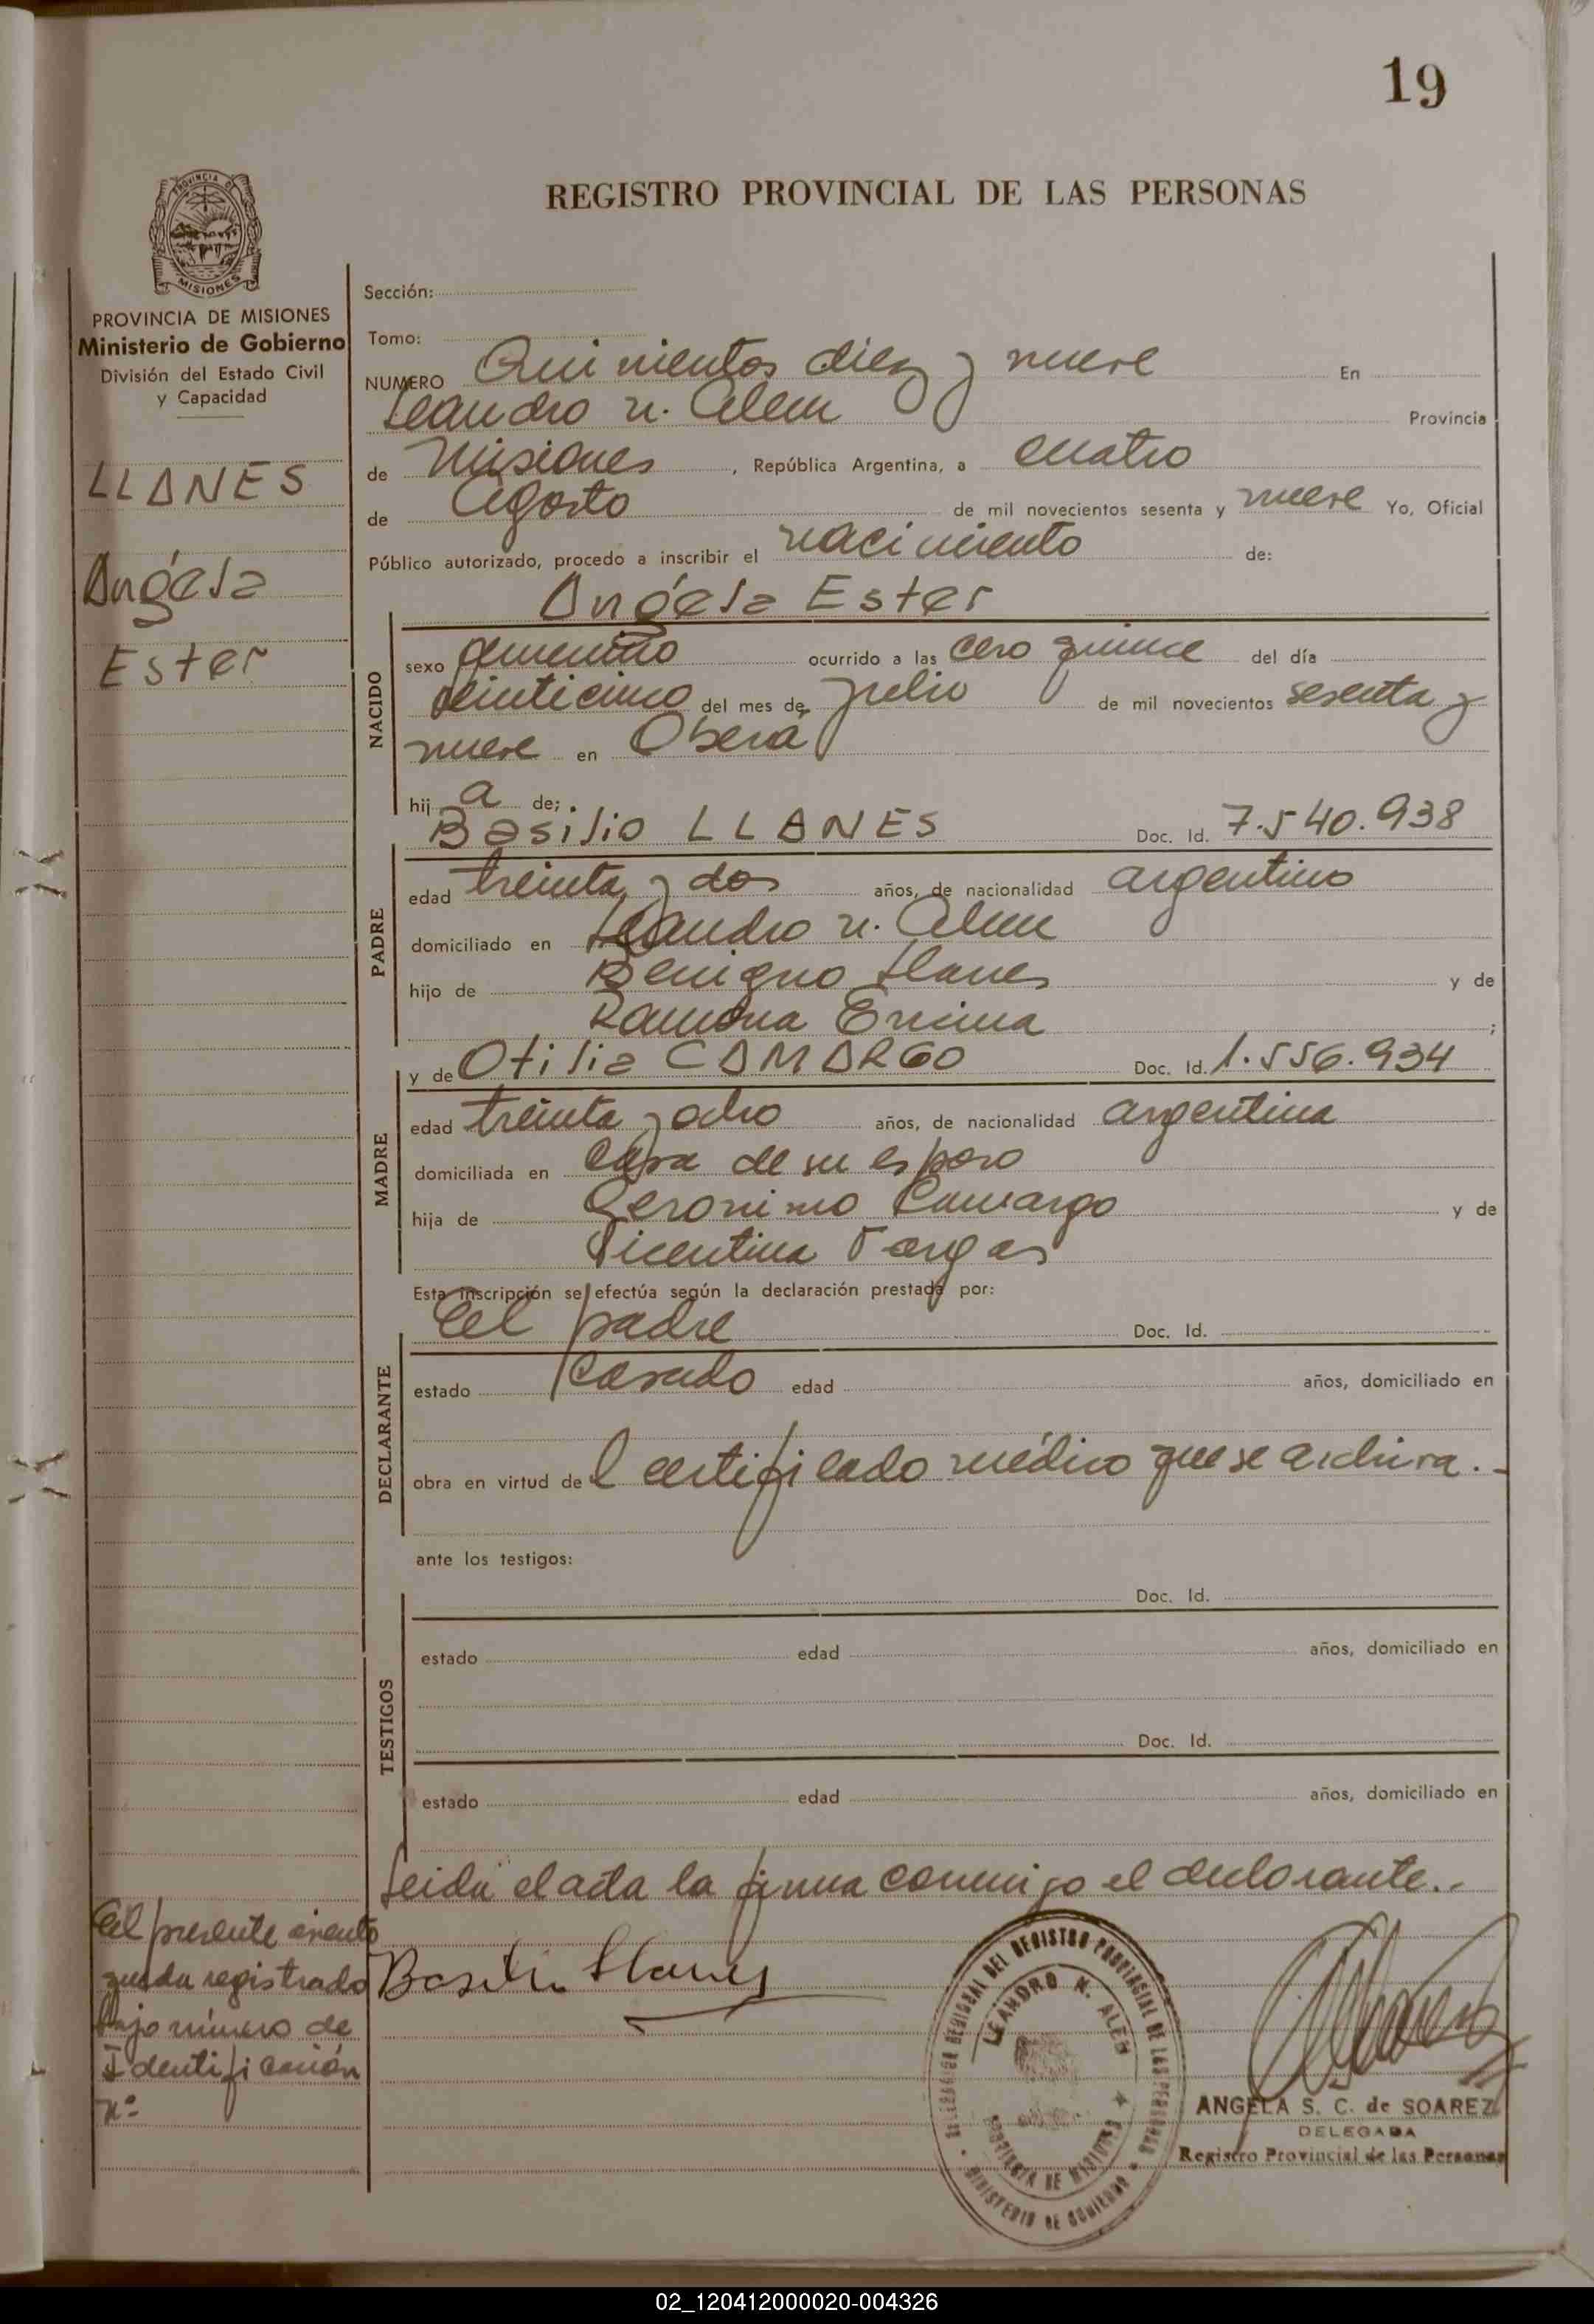 19
REGISTRO PROVINCIAL DE LAS PERSONAS
PROVINCIA DE
MISIONES
PROVINCIA DE MISIONES
Ministerio de Gobierno
División del Estado Civil
y Capacidad
LLANES
Angela
Ester
Sección:
Tomo:
NUMERO Quinientos diez y nueve En
Leandro N. Alem Provincia
de Misiones, República Argentina, a cuatro
de Agosto de mil novecientos sesenta y nueve Yo, Oficial
Público autorizado, procedo a inscribir el nacimiento de:
Angela Ester
NACIDO
sexo femenino ocurrido a las cero quince del día
veinticinco del mes de julio de mil novecientos sesenta y
nueve en Oberá
hija de;
PADRE
Basilio LLANES Doc. Id. 7.540.938
edad treinta y dos años, de nacionalidad argentino
domiciliado en Leandro N. Alem
hijo de Benigno Llanes y de
Ramona ;
MADRE
y de Otilia CAMARGO Doc. Id. 1.556.934
edad treinta y ocho años, de nacionalidad argentina
domiciliada en casa de su esposo
hija de Geronimo Camargo y de
Vicentina Vargas
Esta inscripción se efectúa según la declaración prestada por:
DECLARANTE
el padre Doc. Id.
estado casado edad años, domiciliado en
obra en virtud del certificado médico que se archiva.-
ante los testigos:
TESTIGOS
Doc. Id.
estado edad años, domiciliado en
Doc. Id.
estado edad años, domiciliado en
Leida el acta la firma conmigo el declarante.-
El presente asiento
queda registrado
bajo número de
Identificación
Nº
Basilio Llanes
DELEGACION REGIONAL DEL REGISTRO PROVINCIAL DE LAS PERSONAS
LEANDRO N. ALEM
PROVINCIA DE MISIONES
MINISTERIO DE GOBIERNO
ANGELA S. C. de SOAREZ
DELEGADA
Registro Provincial de las Personas
02_120412000020-004326